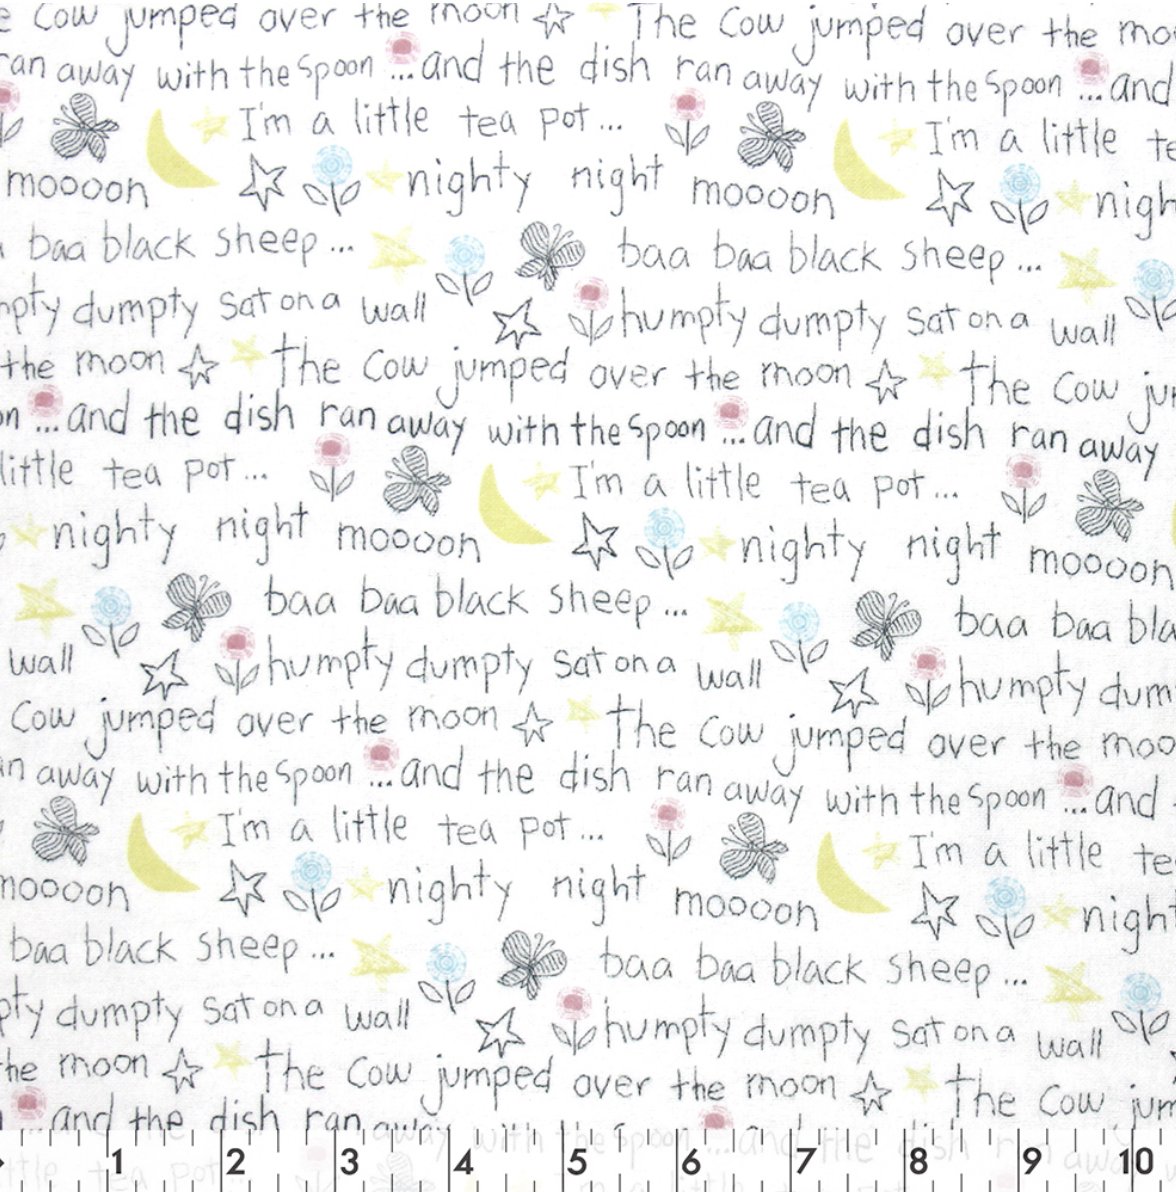 Cow jumped over the moon The Cow jumped over the
ran away with the spoon ...and the dish ran away with the spoon ...and
I'm a little tea pot... I'm a little
moooon nighty night moooon
baa black sheep... baa baa black sheep...
dumpty sat on a wall humpty dumpty sat on a wall
the moon the cow jumped over the moon the cow
...and the dish ran away with the spoon ...and the dish ran away
little tea pot... I'm a little tea pot...
nighty night moooon nighty night moooon
baa baa black sheep... baa baa
wall humpty dumpty sat on a wall humpty
Cow jumped over the moon the cow jumped over the
away with the spoon ...and the dish ran away with the spoon ...and
I'm a little tea pot... I'm a little
moooon nighty night moooon
baa black sheep... baa baa black sheep...
dumpty sat on a wall humpty dumpty sat on a wall
the moon the cow jumped over the moon the cow
...and the dish ran away with the spoon ...and the dish
1 2 3 4 5 6 7 8 9 10